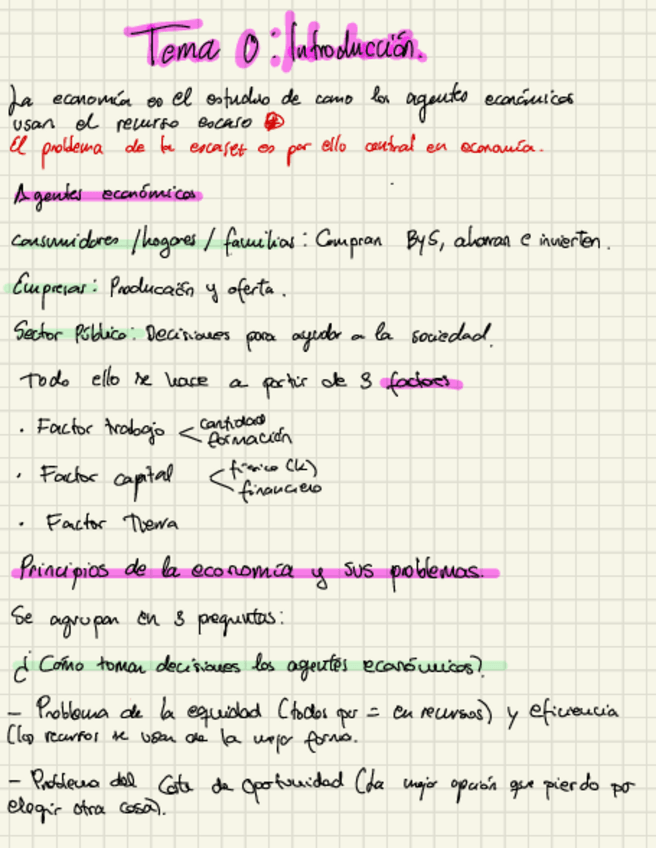 Tema 0: Introducción.
La economía es el estudio de como los agentes económicos
usan el recurso escaso
El problema de la escasez es por ello central en economía.
Agentes económicos
Consumidores / hogares / familias: Compran ByS, ahorran e invierten.
Empresas: Producción y oferta.
Sector Público: Decisiones para ayudar a la sociedad.
Todo ello se hace a partir de 3 factores
· Factor trabajo < cantidad
formación
· Factor capital < físico (K)
financiero
· Factor Tierra
Principios de la economía y sus problemas.
Se agrupan en 3 preguntas:
¿Cómo toman decisiones los agentes económicos?
- Problema de la equidad (todos por = en recursos) y eficiencia
(los recursos se usan de la mejor forma.
- Problema del Coste de oportunidad (La mejor opción que pierdo por
elegir otra cosa).